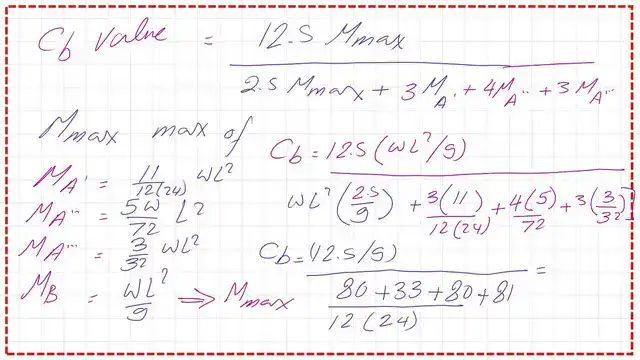 Cb value = 12.5 Mmax
2.5 Mmax + 3 MA' + 4MA'' + 3 MA'''
Mmax max of
MA' = 11/12(24) WL²
MA'' = 5W/72 L²
MA''' = 3/32 WL²
MB = WL²/9 ⇒ Mmax
Cb = 12.5 (WL²/9)
WL² (2.5/9) + 3(11)/12(24) + 4(5)/72 + 3(3/32)]
Cb = (12.5/9) =
80 + 33 + 80 + 81
12 (24)